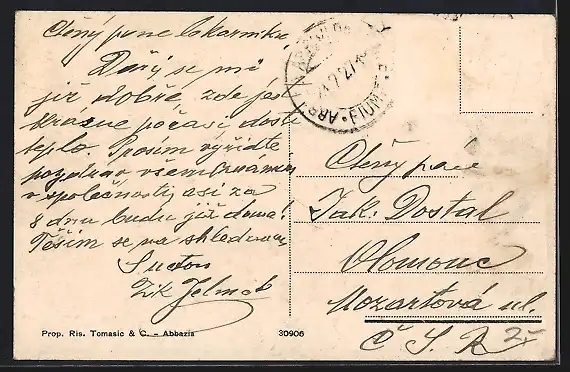 Ctěný pane lékárníku,
Daří se mě
již dobře, zde jest
krásne počasí dosti
teplo. Prosím vyřiďte
pozdrav všem
v společnosti, asi za
8 dnu budu již doma!
Těším se na shledanou
Zik Jelínek
Prop. Ris. Tomasic & C. - Abbazia
30906
ABBAZIA
FIUME
Ctěný pane
Jak. Dostal
Olomouc
Mozartová ul.
Č S. R
25